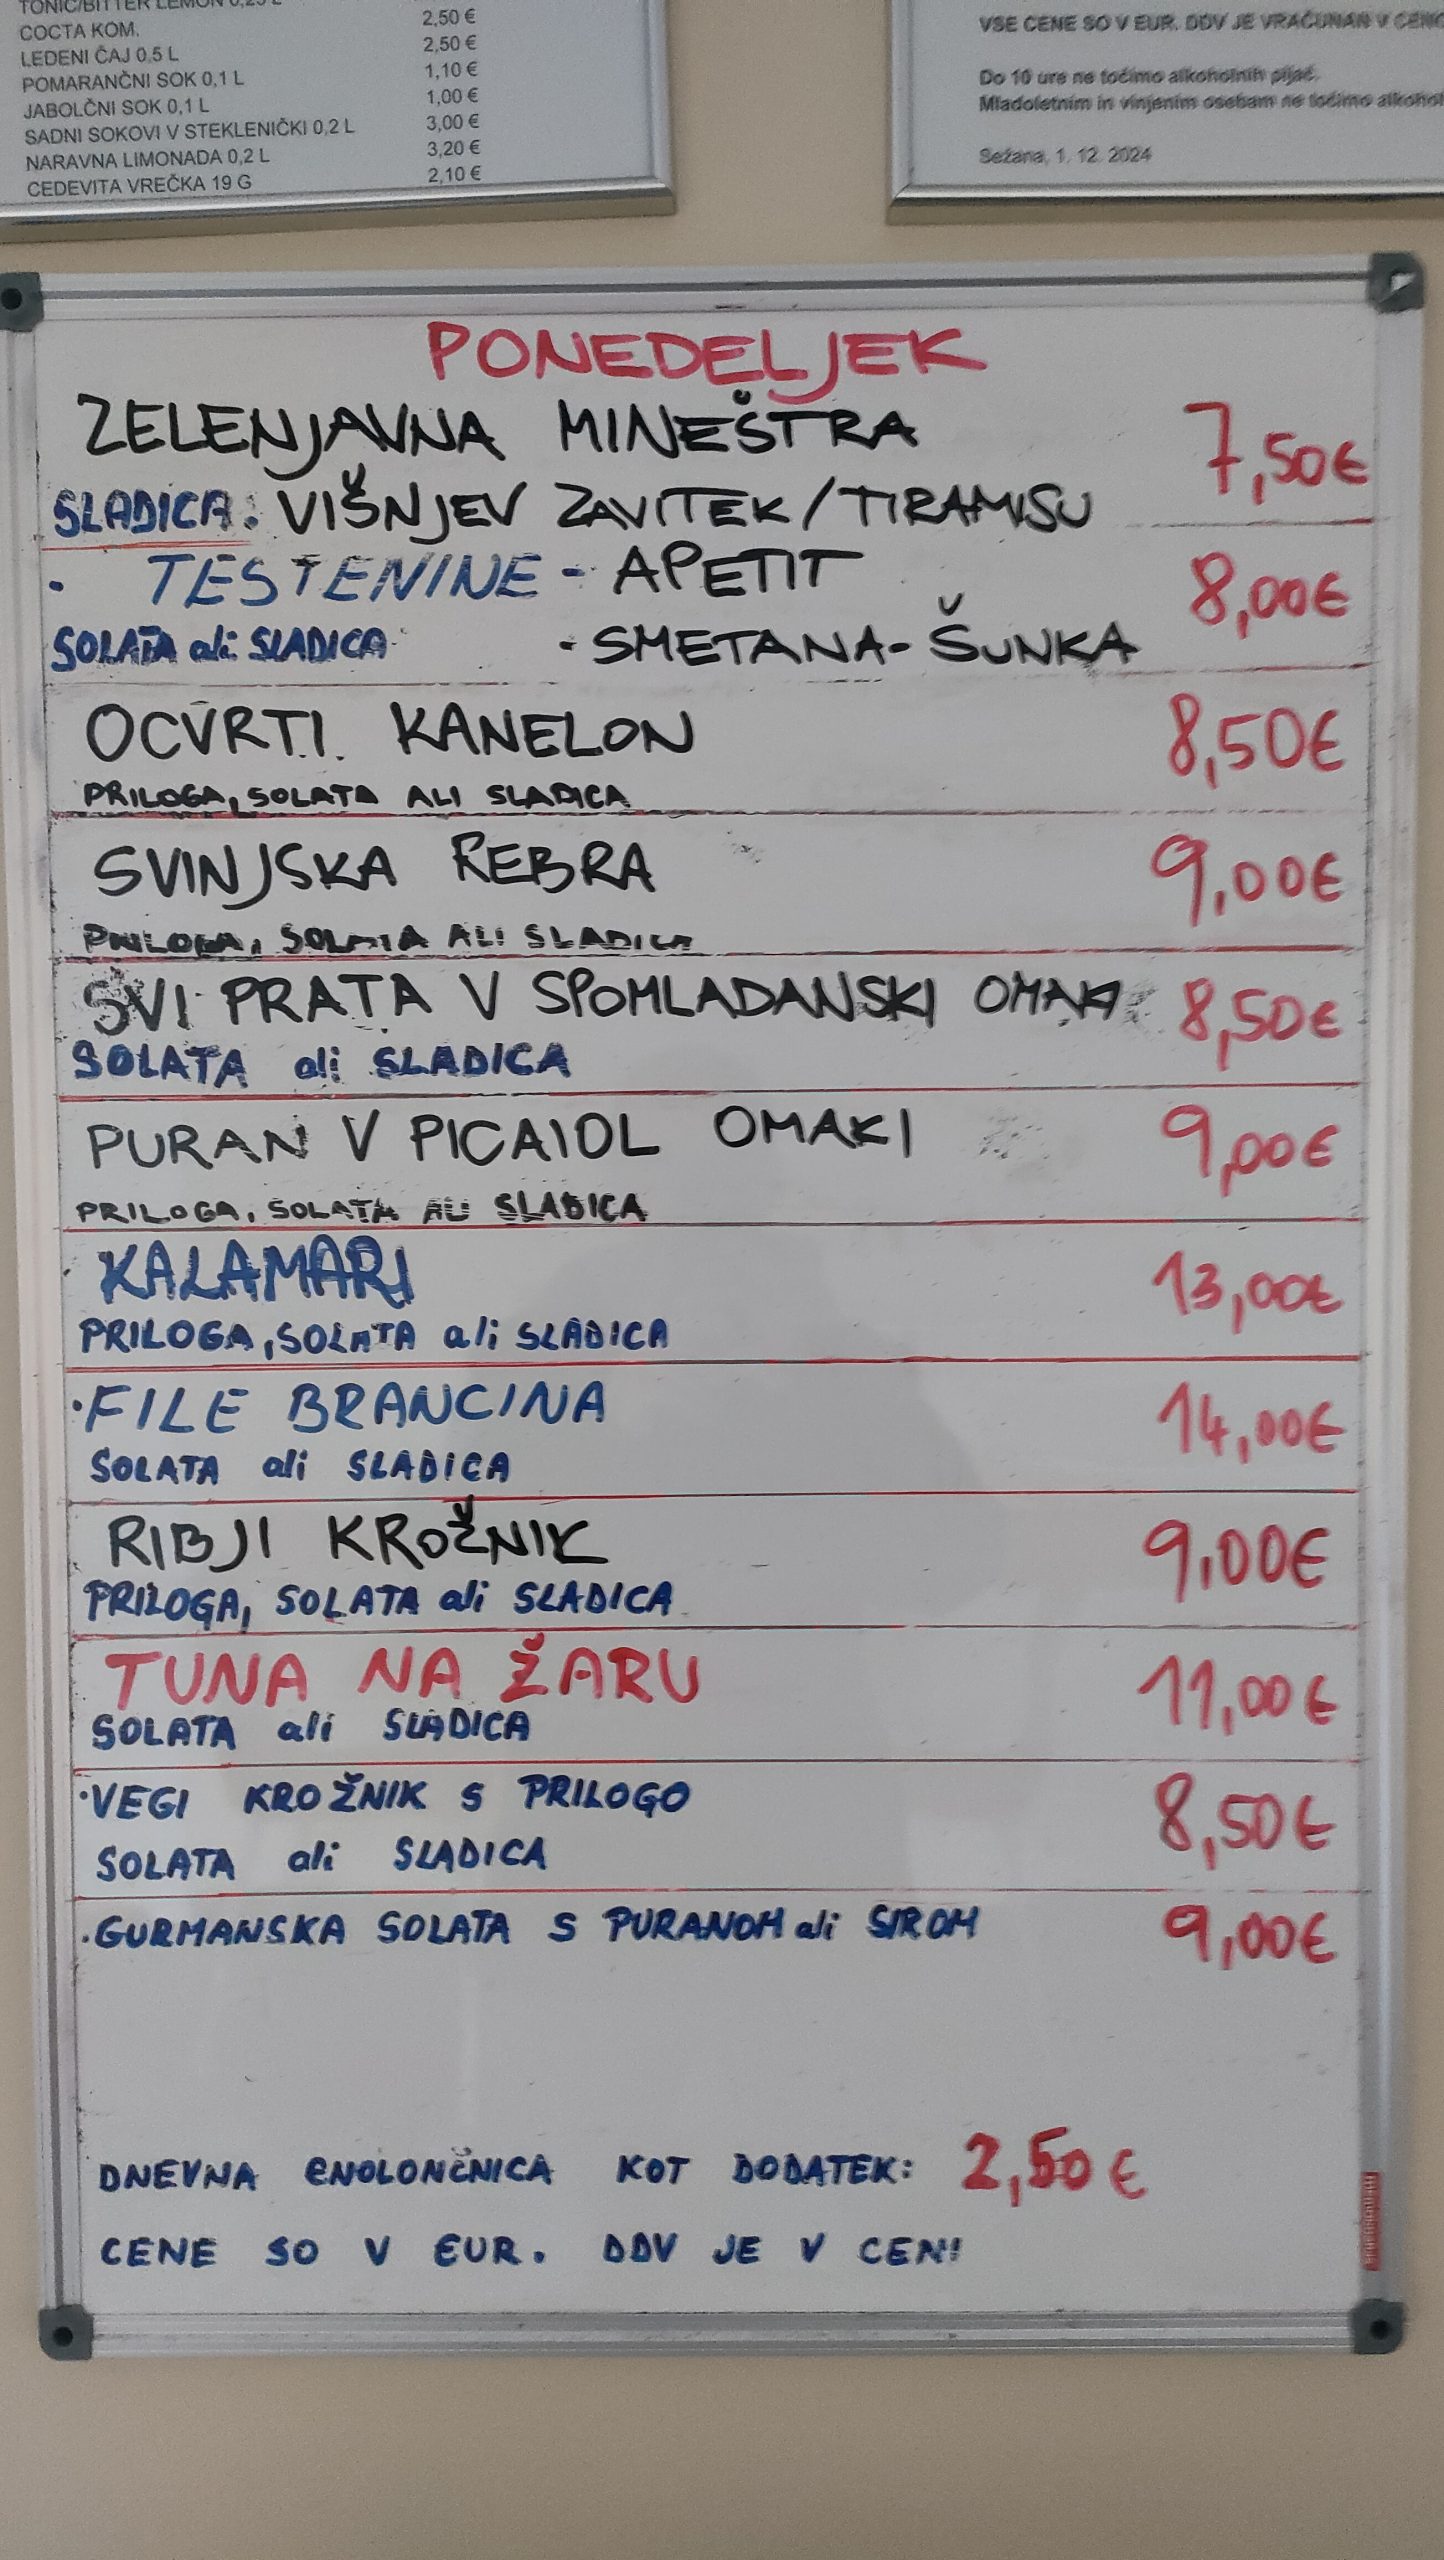 TONIC/BITTER LEMON 0,25 L
COCTA KOM. 2,50 €
LEDENI ČAJ 0.5 L 2,50 €
POMARANČNI SOK 0,1 L 1,10 €
JABOLČNI SOK 0,1 L 1,00 €
SADNI SOKOVI V STEKLENIČKI 0,2 L 3,00 €
NARAVNA LIMONADA 0,2 L 3,20 €
CEDEVITA VREČKA 19 G 2,10 €
VSE CENE SO V EUR. DDV JE VRAČUNAN V CENO
Do 10 ure ne točimo alkoholnih pijač.
Mladoletnim in vinjenim osebam ne točimo alkohol
Sežana, 1. 12. 2024
PONEDELJEK
ZELENJAVNA MINEŠTRA 7,50€
SLADICA: VIŠNJEV ZAVITEK/TIRAMISU
· TESTENINE - APETIT 8,00€
SOLATA ali SLADICA · SMETANA-ŠUNKA
OCVRTI KANELON 8,50€
PRILOGA, SOLATA ALI SLADICA
SVINJSKA REBRA 9,00€
PRILOGA, SOLATA ALI SLADICA
SVI PRATA V SPOMLADANSKI OMAKI 8,50€
SOLATA ali SLADICA
PURAN V PICAIOL OMAKI 9,00€
PRILOGA, SOLATA ALI SLADICA
KALAMARI 13,00€
PRILOGA, SOLATA ali SLADICA
·FILE BRANCINA 14,00€
SOLATA ali SLADICA
RIBJI KROŽNIK 9,00€
PRILOGA, SOLATA ali SLADICA
TUNA NA ŽARU 11,00€
SOLATA ali SLADICA
·VEGI KROŽNIK S PRILOGO 8,50€
SOLATA ali SLADICA
·GURMANSKA SOLATA S PURANOM ali SIROM 9,00€
DNEVNA ENOLONČNICA KOT DODATEK: 2,50 €
CENE SO V EUR. DDV JE V CENI